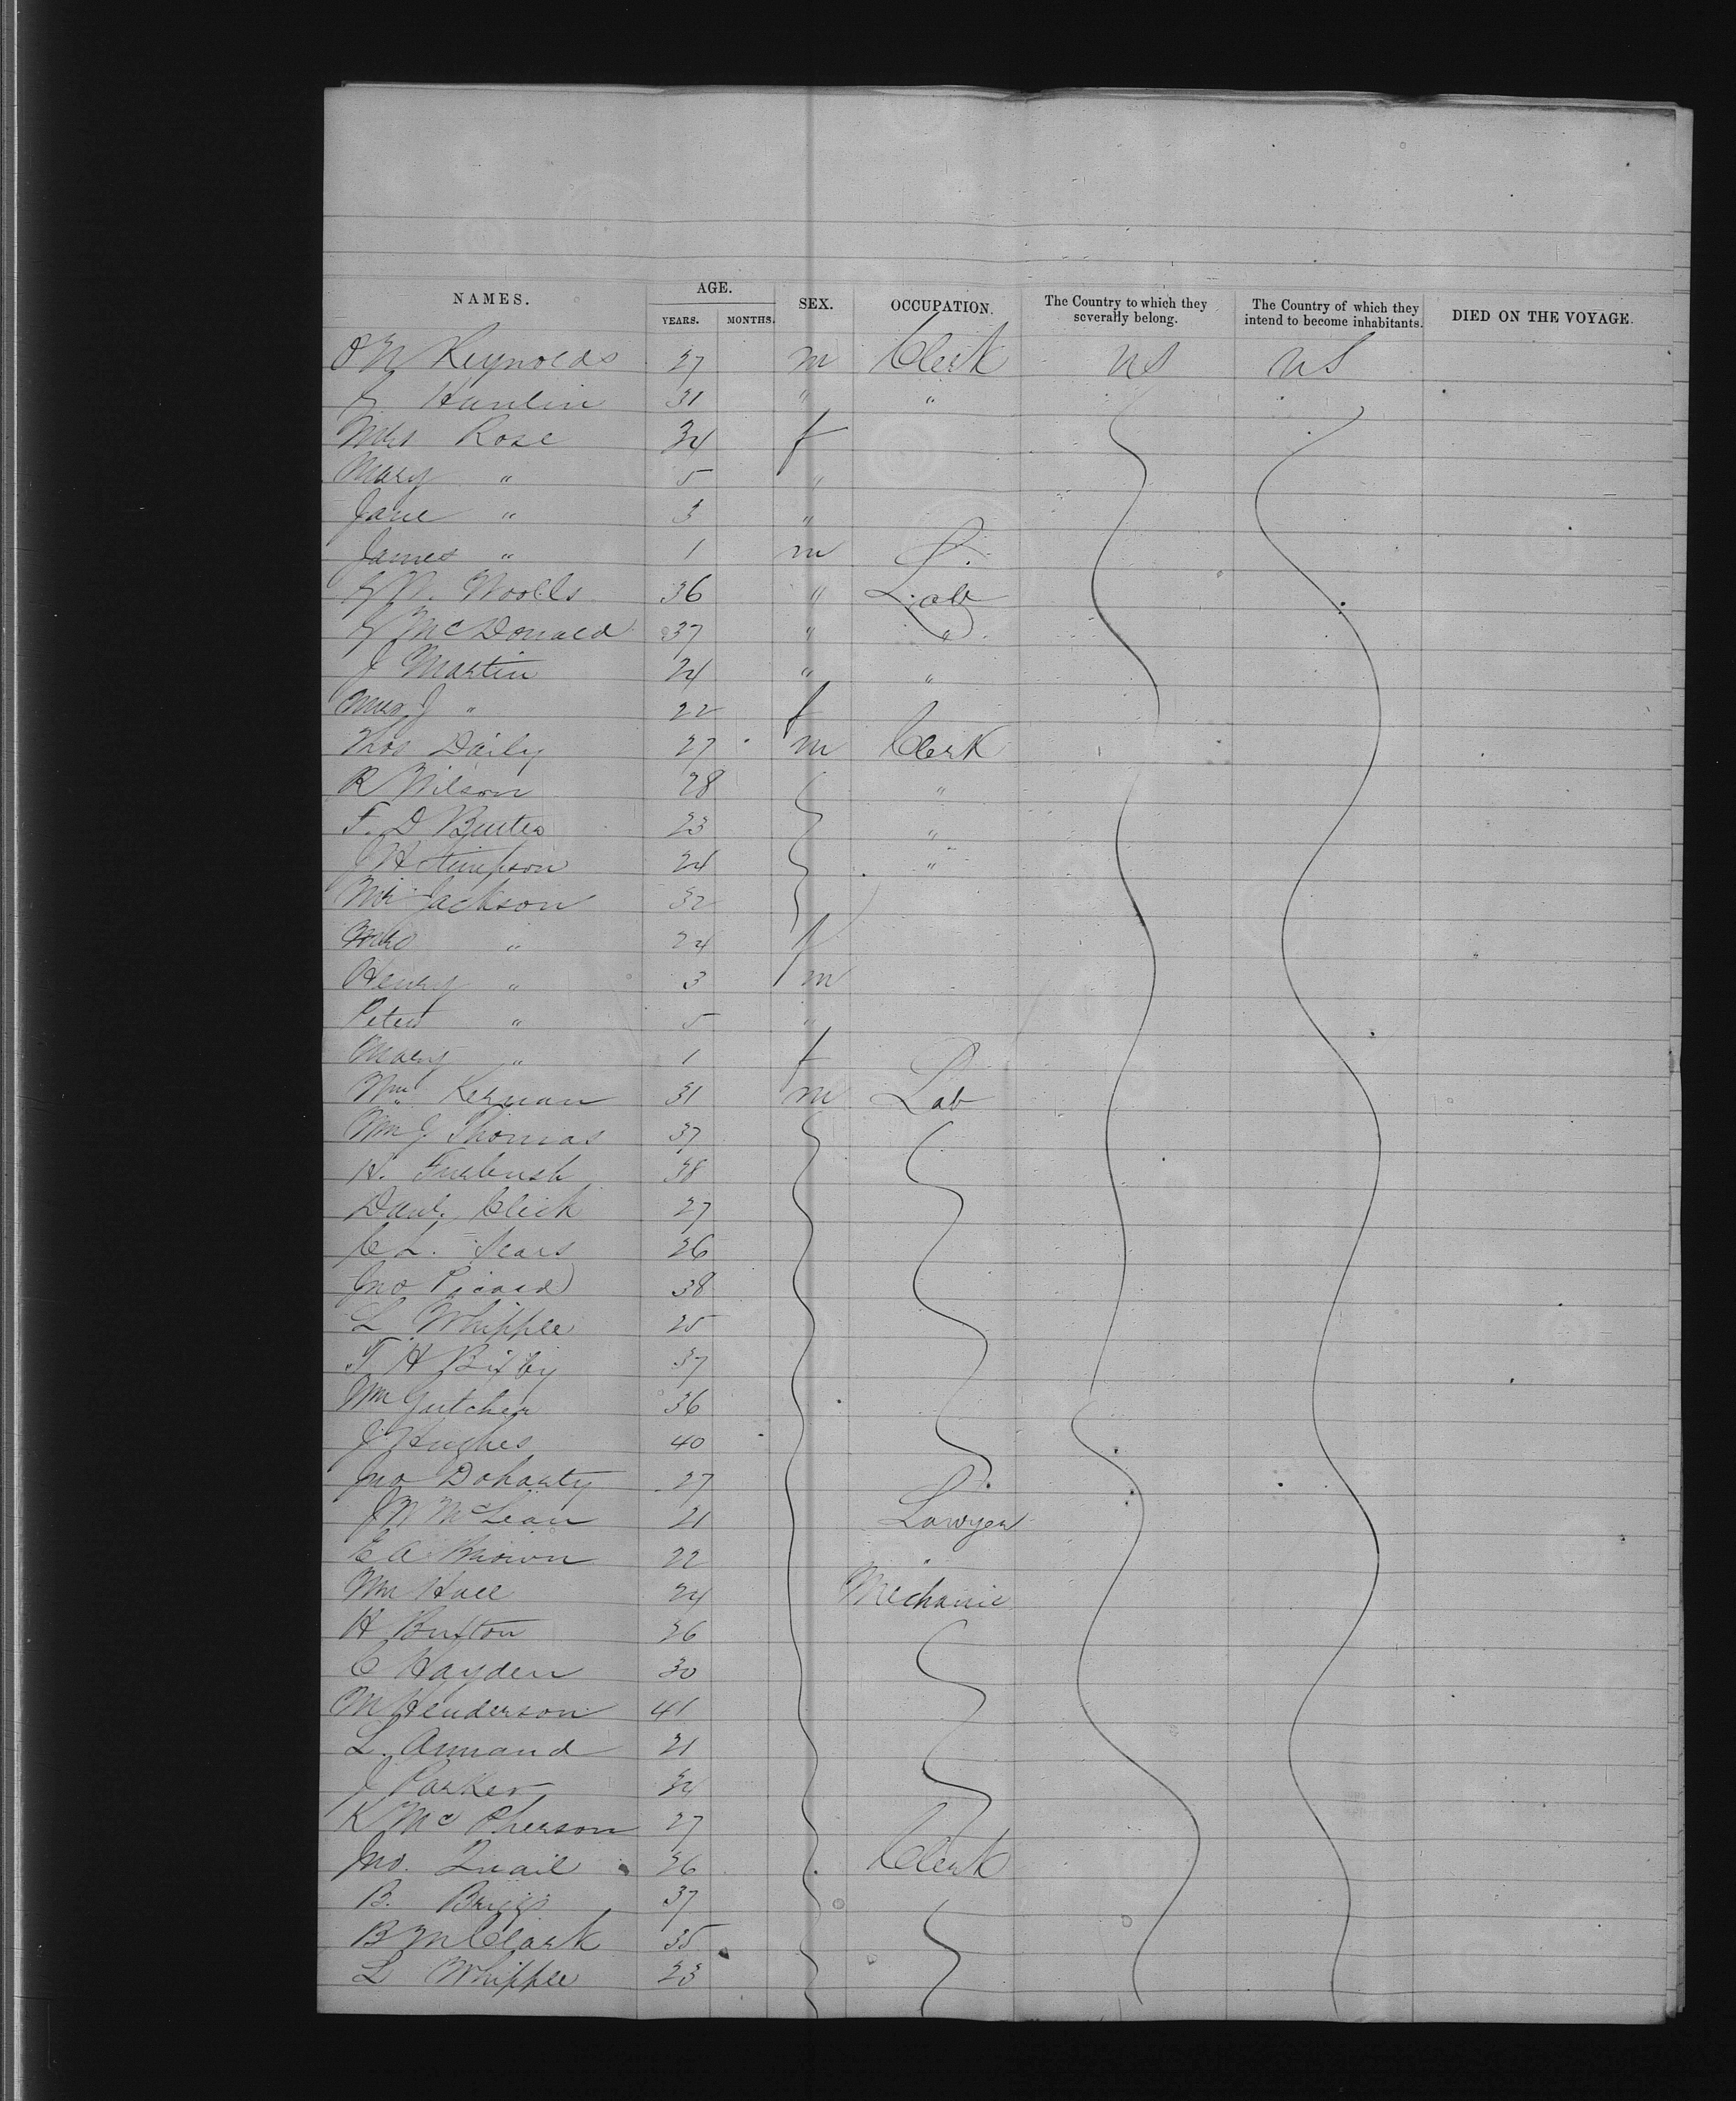 NAMES. AGE. SEX. OCCUPATION. The Country to which they severally belong. The Country of which they intend to become inhabitants. DIED ON THE VOYAGE.
YEARS. MONTHS.
O N Reynolds 27 m Clerk US US
J Hanlin 31 " "
Mrs Rose 34 f
Mary " 5 "
Jane " 3 "
James " 1 m
36 " Lab
McDonald 37 " "
J Martin 24 " "
Mrs J " 22 f
Thos Daily 27 m Clerk
R Wilson 28 "
F. D 23 "
J H Stimpson 24 "
Mr Jackson 32
Mrs " 24 f
Henry " 3 m
Peter " 5 "
Mary " 1 f
Wm Kernan 31 m Lab
Wm J Thomas 37
H. Furbush 38
Danl. Click 27
C L. Sears 26
Jno Picard 38
L Whipple 25
T H Bixby 37
Wm 36
J Hughes 40
Jno Doharty 27
J W McLean 21 Lawyer
E A Brown 22 "
Wm Hall 24 Mechanic
H Buxton 26
C Hayden 30
M Henderson 41
L. Armand 21
J Parker 34
K Mc Pherson 27
Jno. Quail 26 Clerk
B. Briggs 37
B M Clark 35
L Whipple 23